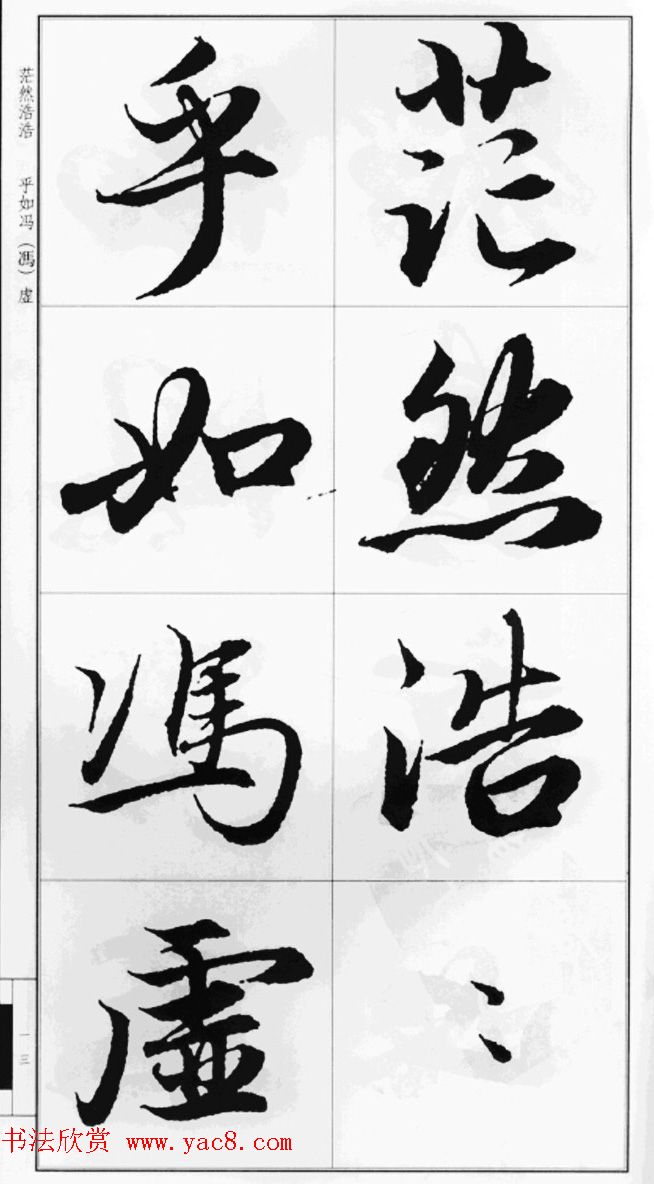 茫然浩〻
乎如馮虛
茫然浩浩 乎如冯（馮）虚
一三
书法欣赏 www.yac8.com